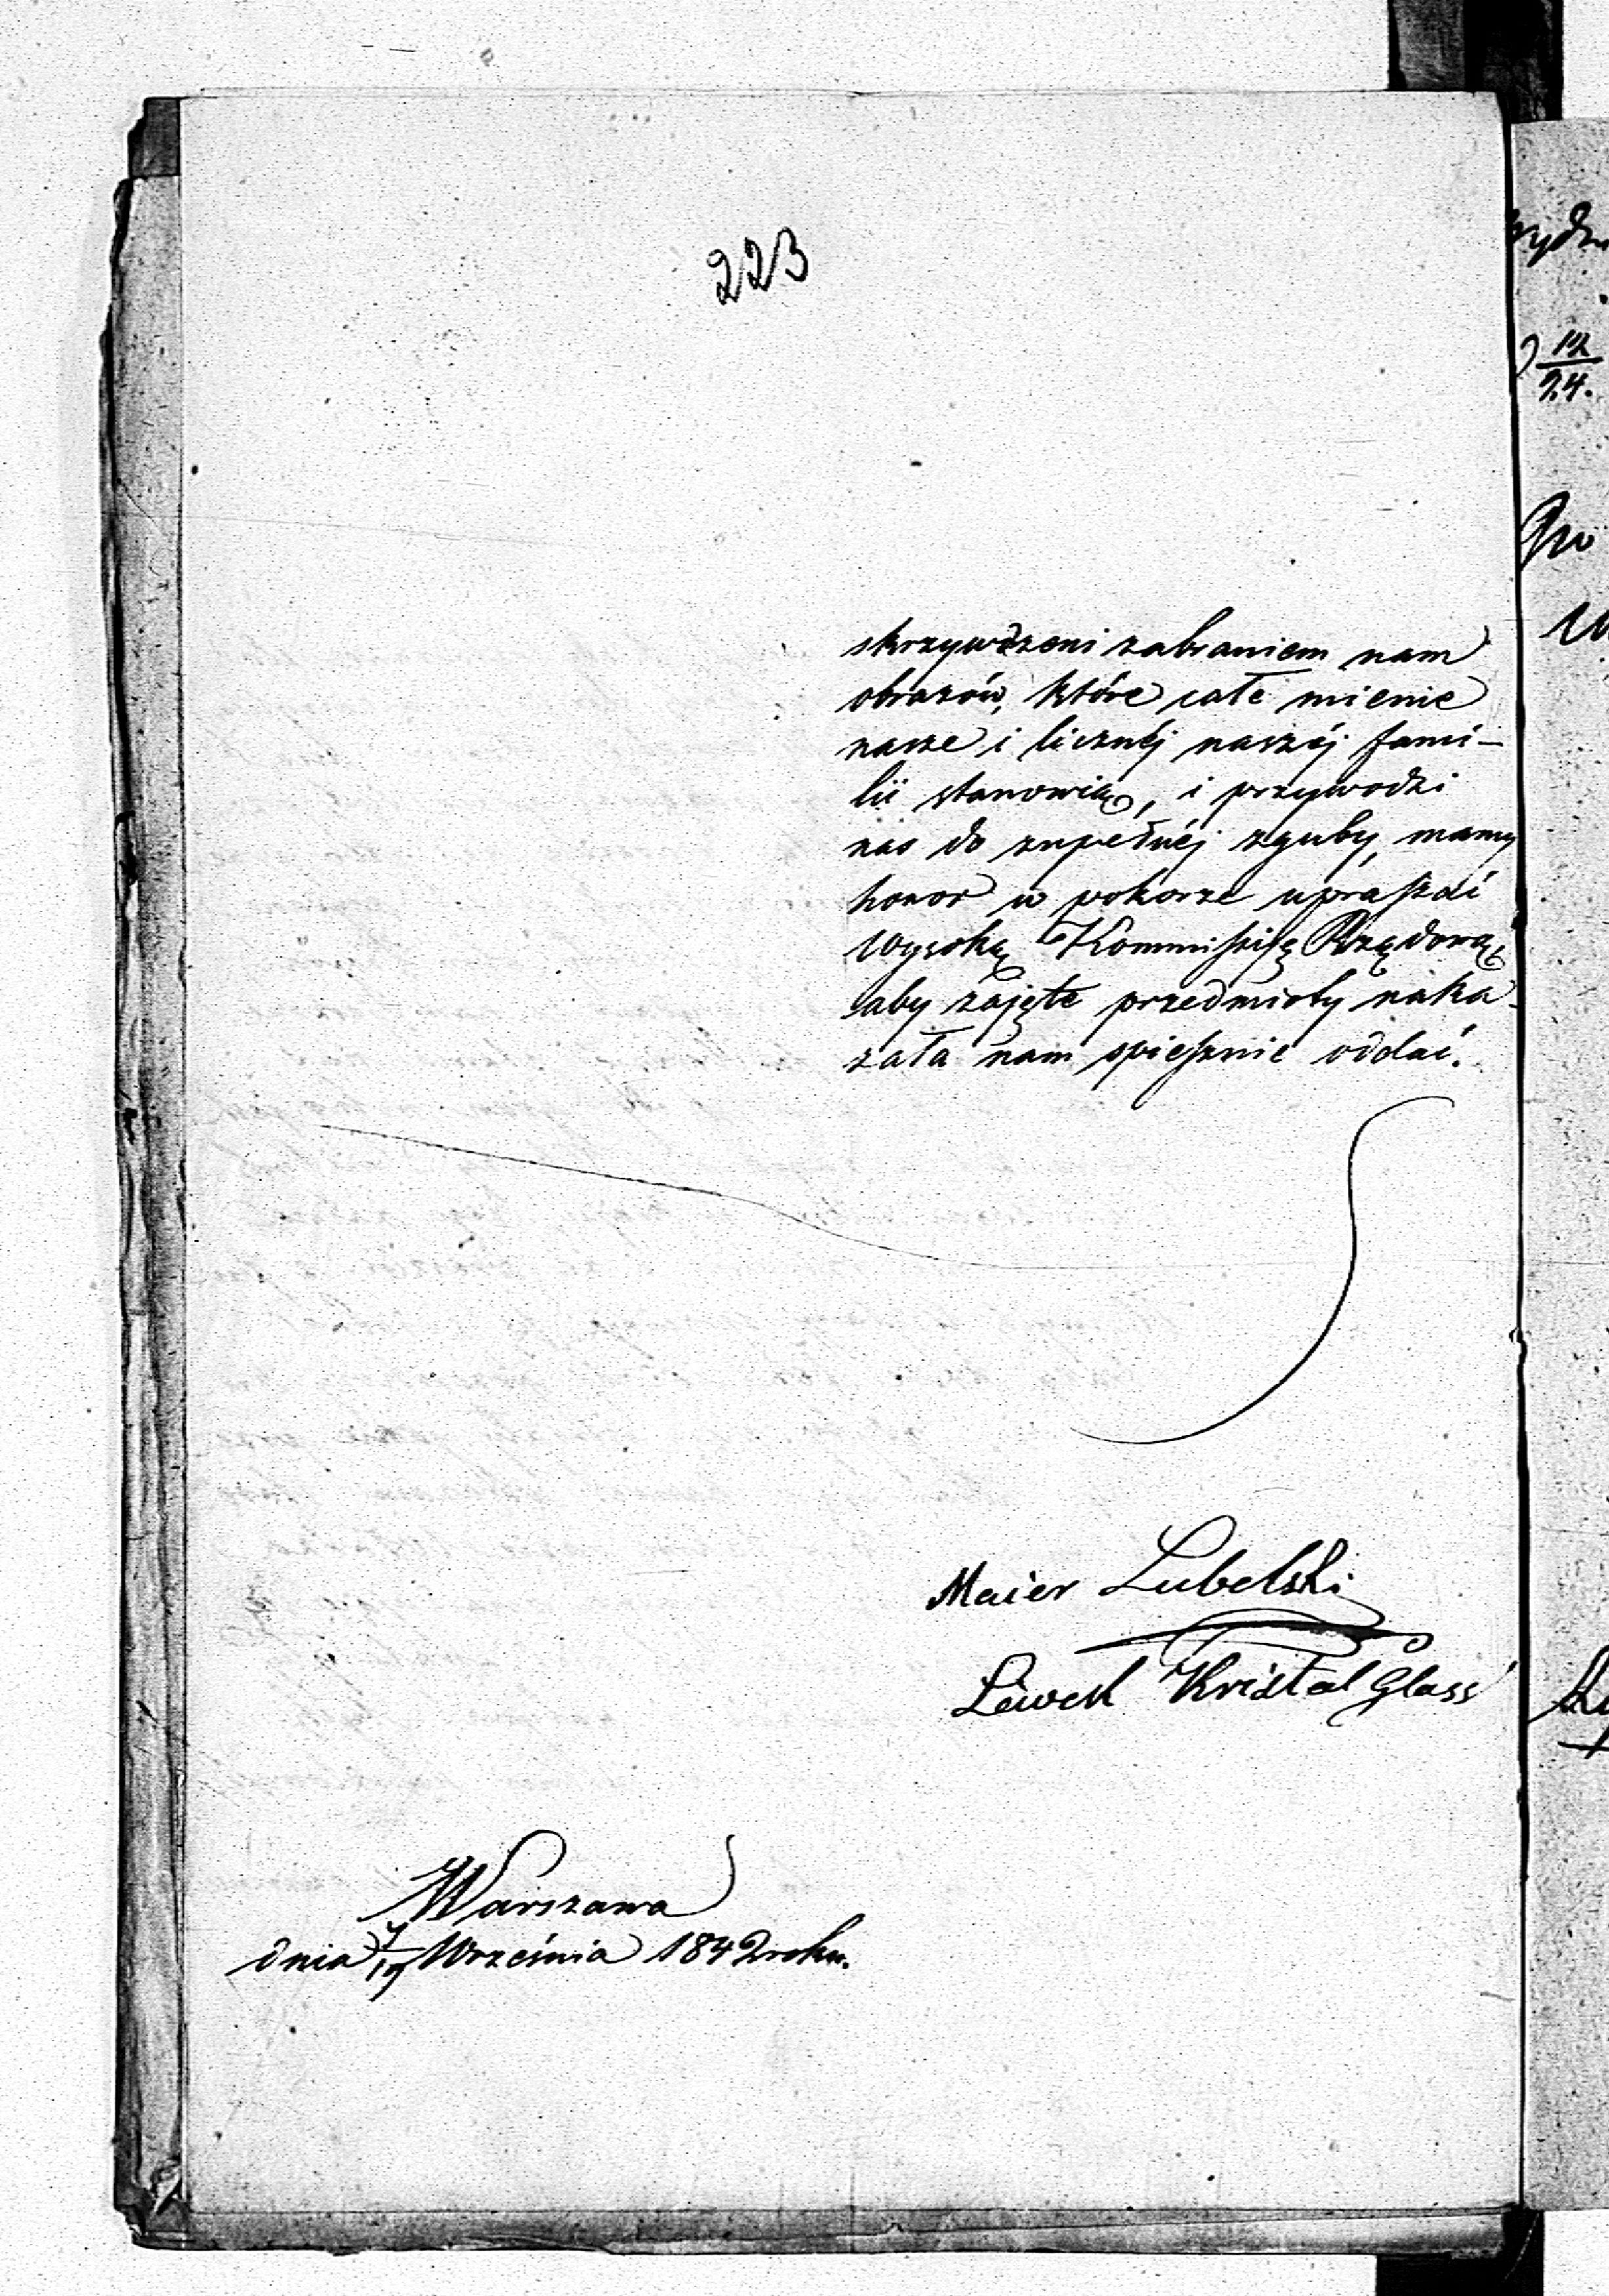 223
skrzywdzeni zabraniem nam
obrazów, które całe mienie
nasze i licznéj naszéj fami-
lii stanowią, i przywodzi
nas do zupełnéj zguby, mamy
honor w pokorze upraszać
Wysoką Kommissiję Rządową,
aby zajęte przedmioty naka-
zała nam spiesznie oddać.
Maier Lubelski
Lewek Kristal Glass
Warszawa
dnia 7/19 Września 1842 roku.
12
24.